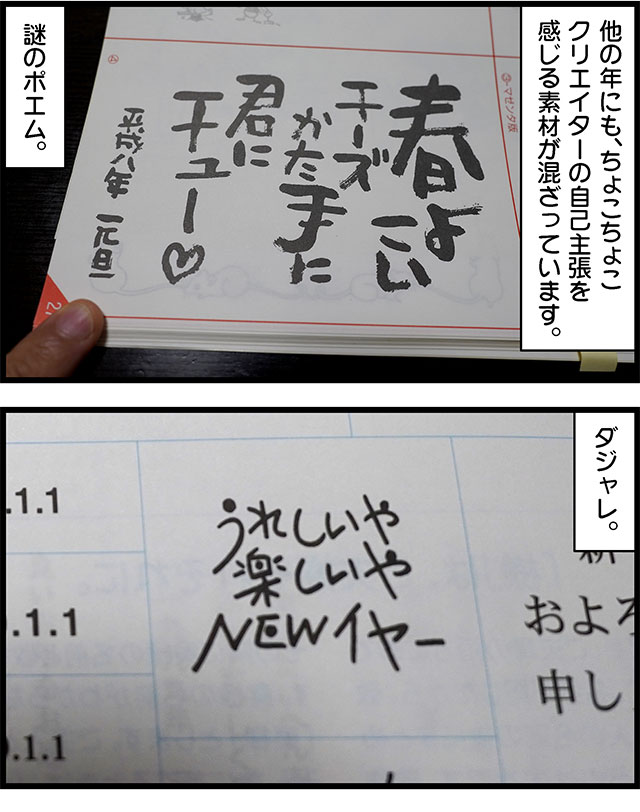 他の年にも、ちょこちょこ
クリエイターの自己主張を
感じる素材が混ざっています。
マゼンタ版
春よこい
チーズ
かた手に
君に
チュー♡
平成八年 元旦
謎のポエム。
ダジャレ。
.1.1
.1.1
.1.1
うれしいや
楽しいや
NEWイヤー
およろ
申し